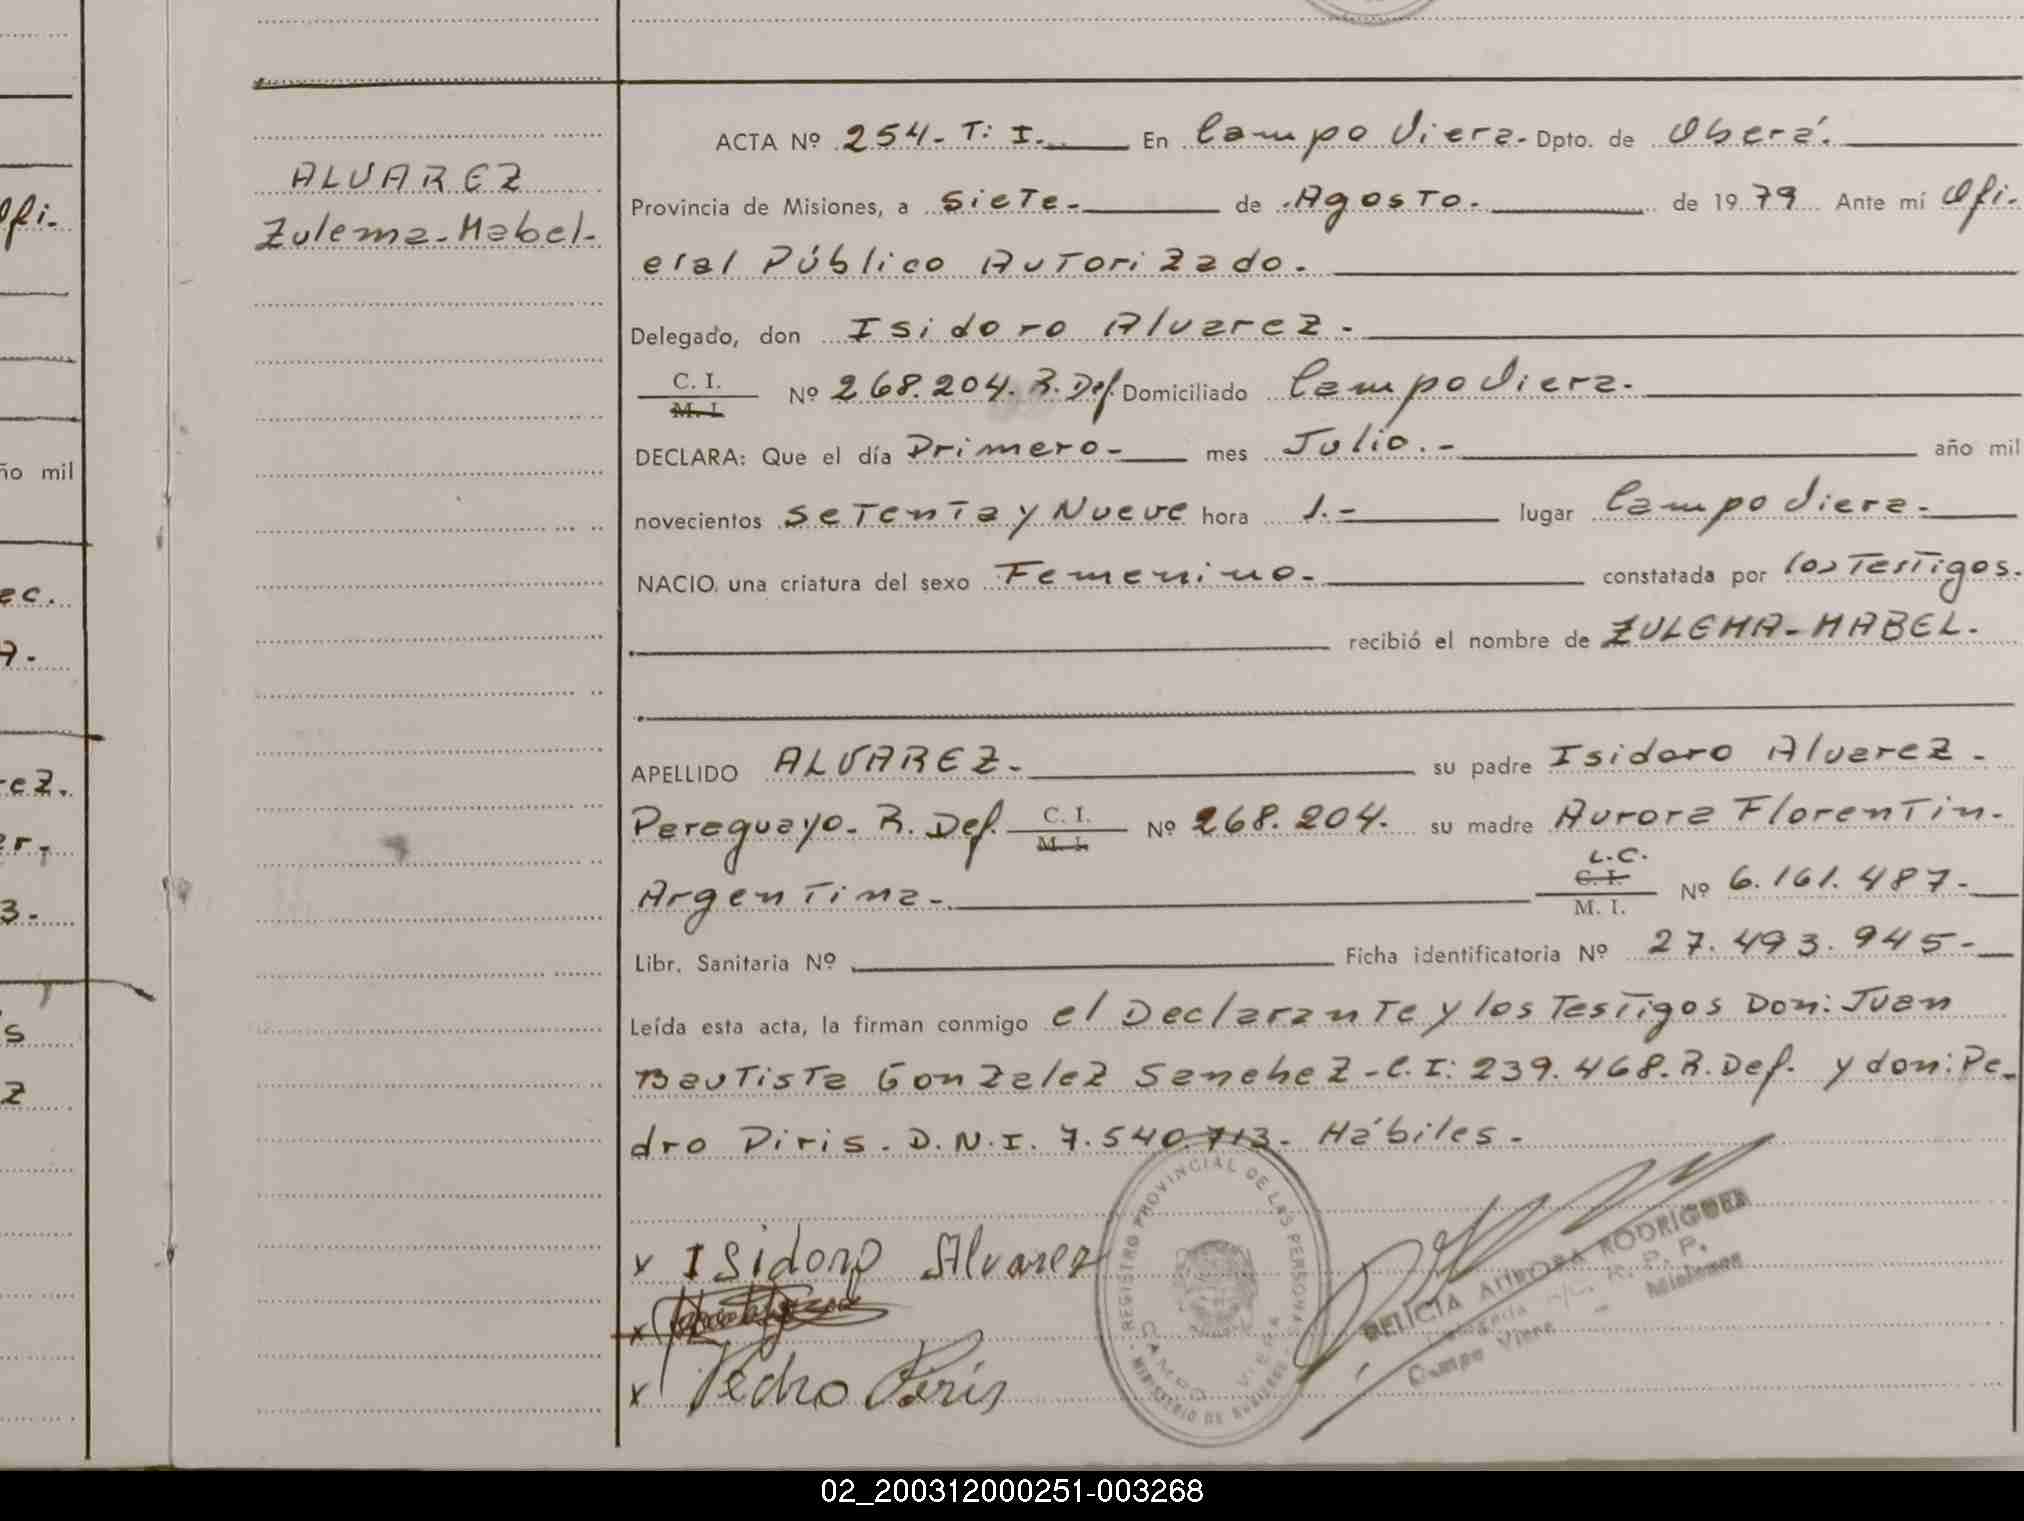 ALVAREZ
Zulema-Mabel-
ACTA Nº 254- T: I. En Campo Viera- Dpto. de Oberá.
Provincia de Misiones, a Siete- de Agosto. de 1979 Ante mí Ofi-
cial Público Autorizado.
Delegado, don Isidoro Alvarez-
C. I.
M. I. Nº 268.204. R. Def. Domiciliado Campo Viera-
DECLARA: Que el día Primero- mes Julio.- año mil
novecientos Setenta y Nueve hora 1.- lugar Campo Viera-
NACIO una criatura del sexo Femenino- constatada por los Testigos.
recibió el nombre de ZULEMA-MABEL-
APELLIDO ALVAREZ- su padre Isidoro Alvarez-
Pereguayo- R. Def. C. I.
M. I. Nº 268.204. su madre Aurora Florentin-
Argentina- L.C.
C. I.
M. I. Nº 6.161.487-
Libr. Sanitaria Nº Ficha identificatoria Nº 27.493.945-
Leída esta acta, la firman conmigo el Declarante y los Testigos Don: Juan
Bautista Gonzalez Sanchez- C.I: 239.468. R. Def. y don: Pe-
dro Piris. D.N.I. 7.540.713- Hábiles-
x Isidoro Alvarez
x
x Pedro Piris
REGISTRO PROVINCIAL DE LAS PERSONAS
CAMPO VIERA
MINISTERIO DE
DELICIA AURORA RODRIGUEZ
R. P. P.
Campo Viera - Misiones
Ofi-
ño mil
ec.
A-
rez.
er,
3-
s
z
02_200312000251-003268